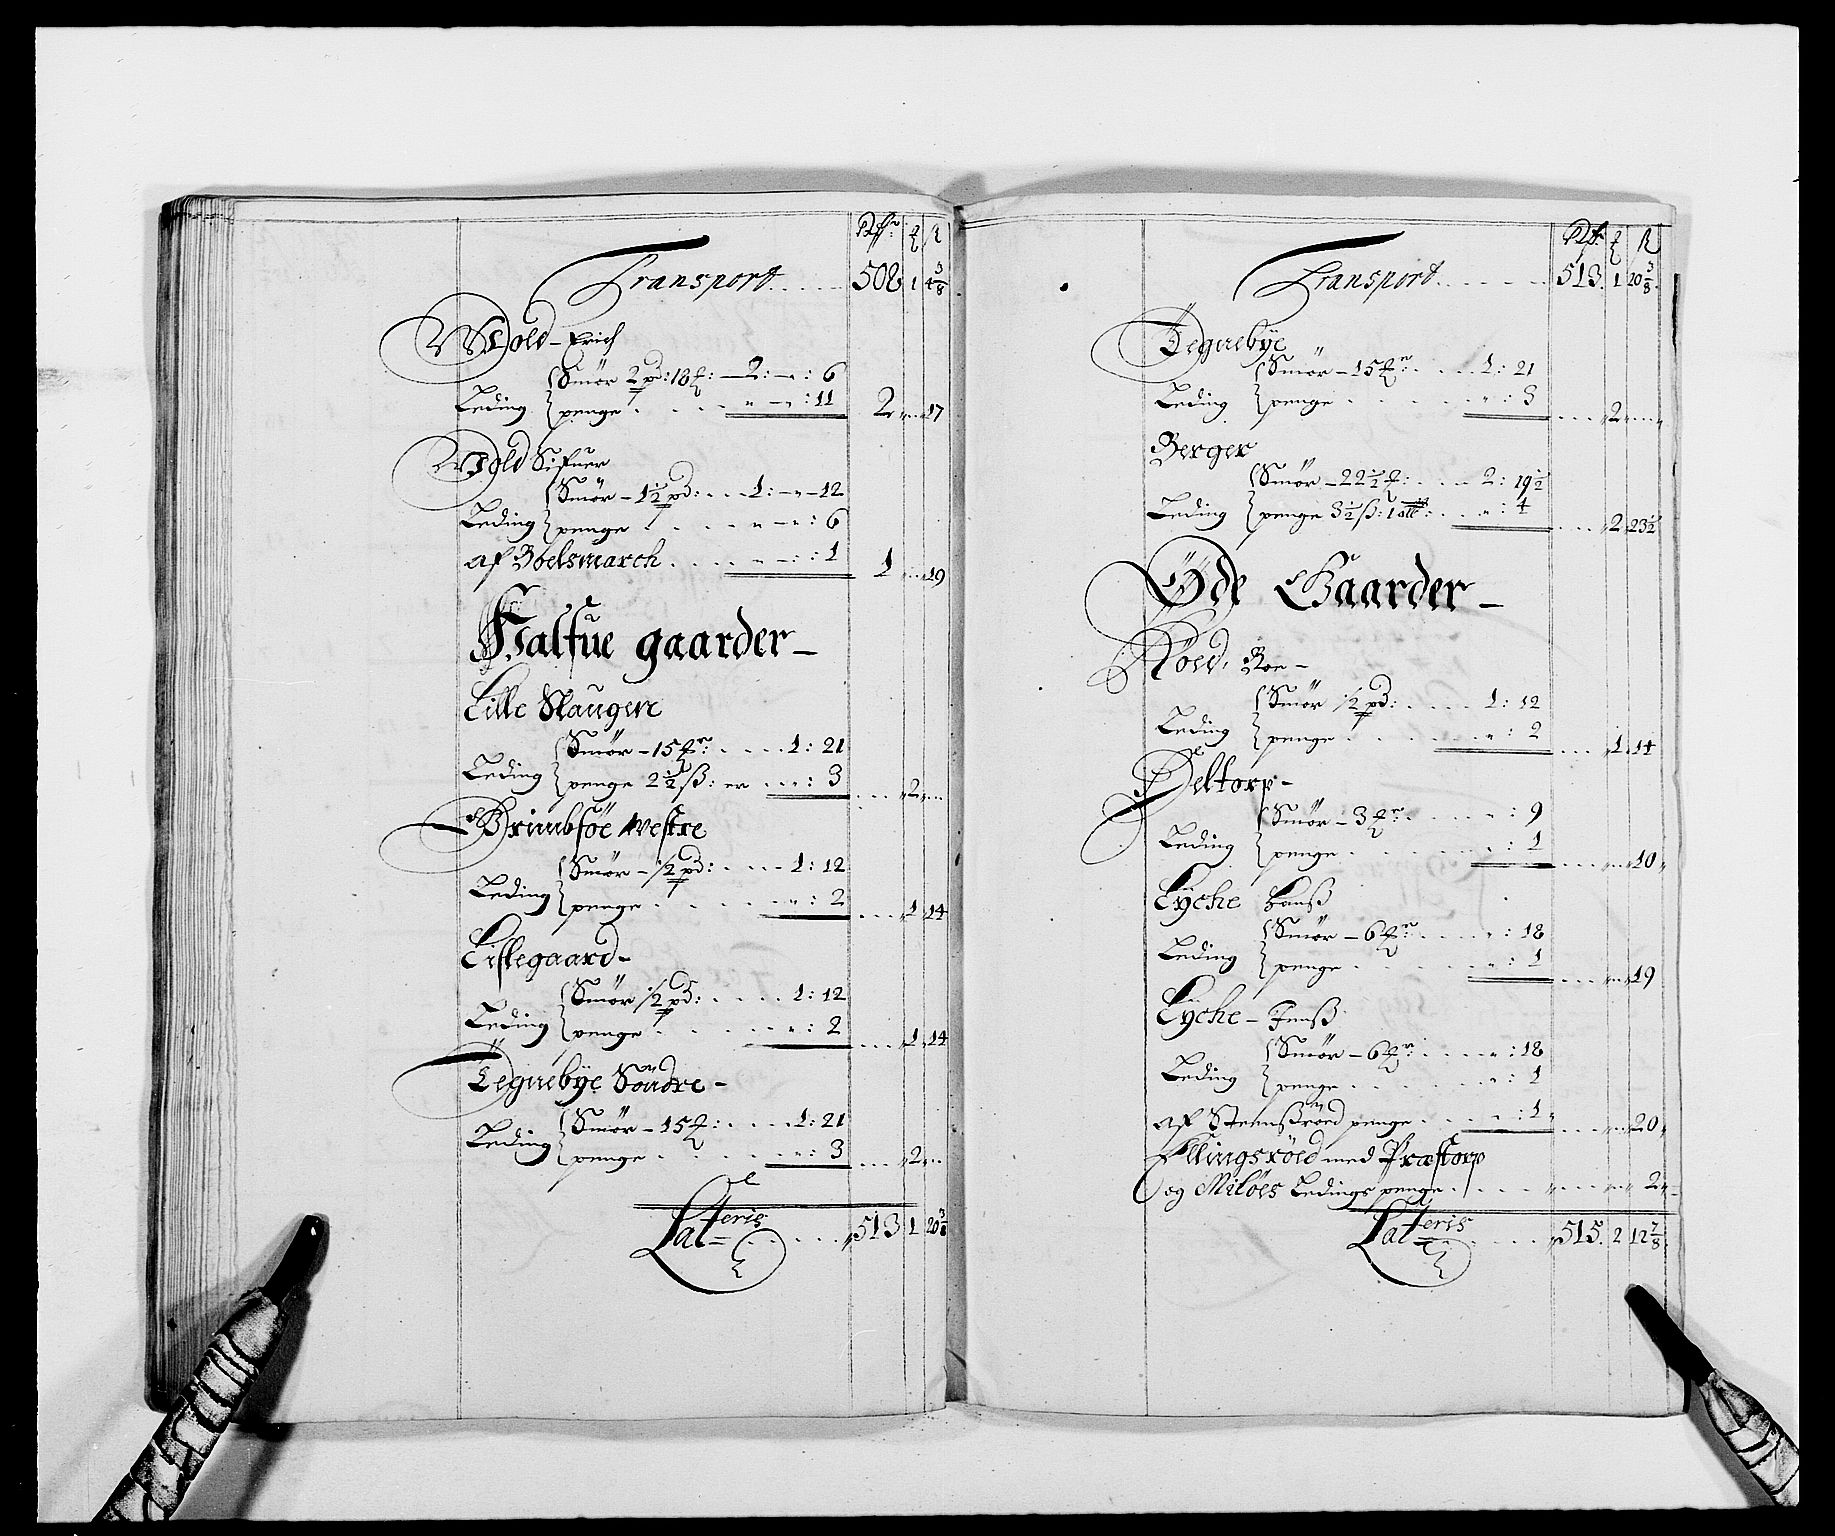 Rdr ß
Transport . . . . 508 1 4 3/8
Wold - Erich
Smör 2 pd: 18 : — 2: — " : 6
Leding penge . . . . " — " : 11 2 " 17
Wold Sifuer
Smör — 1½ pd: . . . 1: — " — 12
Leding penge . . . . " — " : 6
af Boelsmarch . . . . " — : 1 1 19
Halfue gaarder —
Lille Slaugere
Smör — 15 : . . . . 1: 21
Leding penge 2½ ß: er . . " : 3 . . . 2 "
Grimbsöe Westre
Smör — ½ pd: . . . . 1: 12
Leding penge . . . . . " : 2 . . . 1 14
Lislegaard -
Smör ½ pd: . . . . 1: 12
Leding penge . . . . . " : 2 . . . 1 14
Tegnebÿe Söndre -
Smör — 15 : . . . . 1: 21
Leding penge . . . . . " : 3 . . . 2 "
Lateris . . . . 513 1 20 3/8
Rdr ß
Transport . . . . 513 1 20 3/8
Tegnebÿe
Smör — 15 : . . . . 1: 21
Leding penge . . . . . " : 3 . . . 2 "
Berger
Smör — 22½ : . . . 2: 19½
Leding penge 3½ ß: 1 alb: . . " : 4 . . . 2 23½
Öde Gaarder —
Röed, Roe —
Smör ½ pd: . . . . 1: 12
Leding penge . . . . . " : 2 . . . 1 14
Deltorp —
Smör — 3 : . . . . " : 9
Leding penge . . . . . " : 1 . . . " 10
Lÿche Hanß
Smör — 6 : . . . . " : 18
Leding penge . . . . . " : 1 . . . " 19
Lÿche — Jenß
Smör — 6 : . . . . " : 18
Leding penge . . . . . " : 1
af Steenßröed penge . . . " : 1 . . . " 20
Ellingsröed med Præstorp
og Milöes Ledings penge . . . . " " 2
Lateris . . . . 515 2 12 7/8